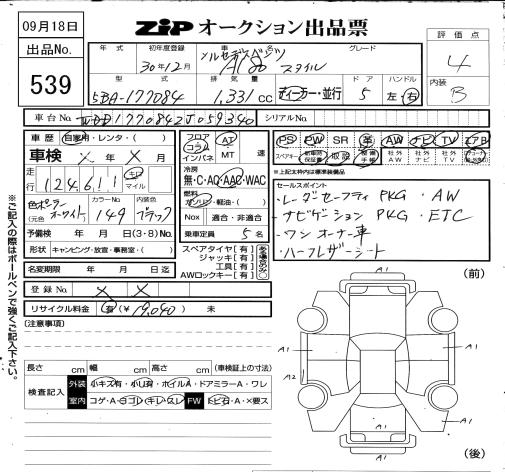 09月18日
ZiP オークション出品票
出品No.
539
年式
初年度登録
車名
グレード
30年12月
メルセデスベンツ
A180 スタイル
評価点
4
内装
B
型式
排気量
ドア
ハンドル
5BA-177084
1,331 cc
ディーラー・並行
5
左・右
車台No.
WDD1770842J059340
シリアルNo.
車歴
自家用・レンタ・( )
車検 × 年 × 月
走行
124,611
キロ
マイル
色
(元色 )
ポーラーホワイト
カラーNo.
149
内装色
ブラック
予備検 年 月 日(3・8)No.
形状 キャンピング・放宣・事務室・( )
名変期限 年 月 日迄
フロア
コラム
インパネ
AT
MT
速
冷房
無・C・AC・AAC・WAC
燃料
ガソリン・軽油・( )
Nox 適合・非適合
乗車定員 5 名
スペアタイヤ[有]
ジャッキ[有]
工具[有]
AWロックキー[有]
ある場合のみ○
PS PW SR 革 AW ナビ TV エアB
スペアキー
保証書
取説
手帳
社外AW
社外ナビ
社外TV
※上記太枠内は標準装備品
セールスポイント
・レーダーセーフティPKG ・AW
・ナビゲーションPKG ・ETC
・ワンオーナー車
・ハーフレザーシート
登録No. × ×
リサイクル料金 有(¥19,040) 未
(注意事項)
長さ cm 幅 cm 高さ cm (車検証上の寸法)
検査記入
外装
小キズ有・小凹有・ホイルA・ドアミラーA・ワレ
室内
コゲ・A・ヨゴレ・キレ・スレ
FW
トビ石・A・×要ス
※ご記入の際はボールペンで強くご記入下さい
(前)
A1
A1
A1
A2
A1
A1
A1
(後)